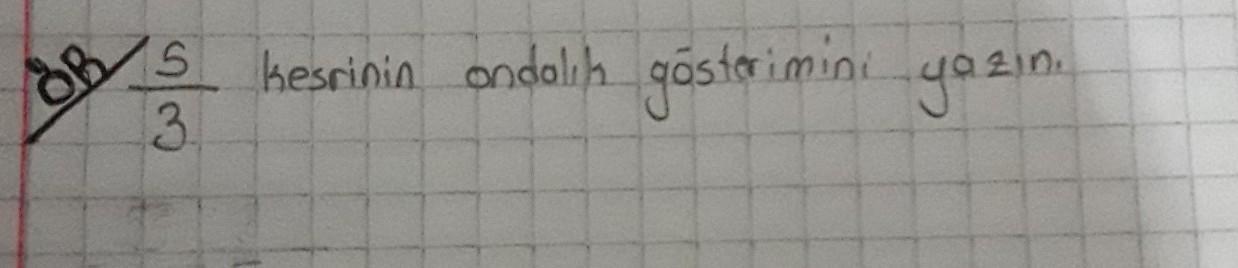 ÖR/ 5/3 kesrinin ondalık gösterimini yazın.